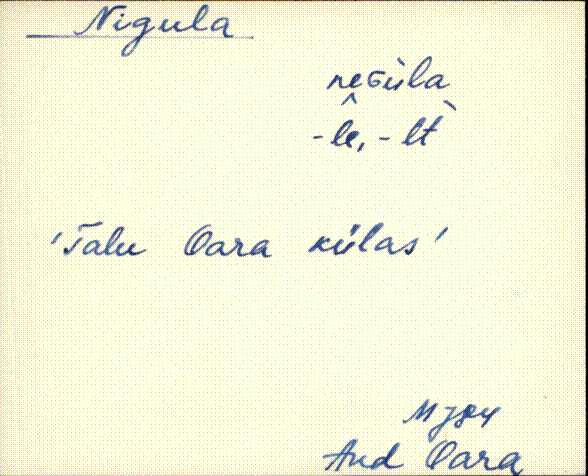 Nigula
neɢùla
-lê, -lt̀
'Talu Oara külas'
Aud Oara